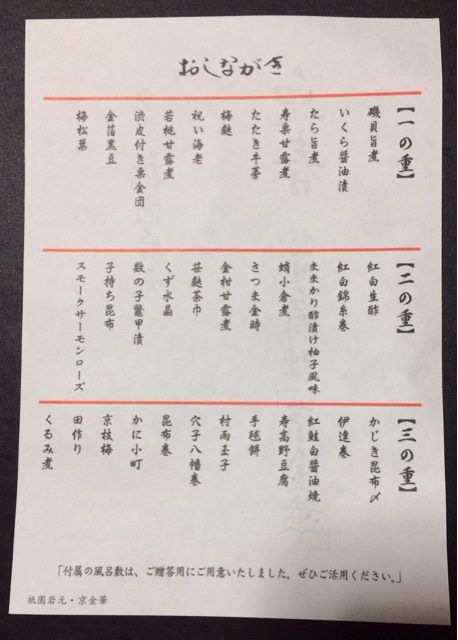 おしながき
【一の重】
磯貝旨煮
いくら醤油漬
たら旨煮
寿栗甘露煮
たたき牛蒡
梅麩
祝い海老
若桃甘露煮
渋皮付き栗金団
金箔黒豆
梅松葉
【二の重】
紅白生酢
紅白錦糸巻
ままかり酢漬け柚子風味
蛸小倉煮
さつま金時
金柑甘露煮
笹麩茶巾
くず水晶
数の子鼈甲漬
子持ち昆布
スモークサーモンローズ
【三の重】
かじき昆布〆
伊達巻
紅鮭白醤油焼
寿高野豆腐
手毬餅
村雨玉子
穴子八幡巻
昆布巻
かに小町
京枝梅
田作り
くるみ煮
「付属の風呂敷は、ご贈答用にご用意いたしました。ぜひご活用ください。」
祇園岩元・京金華